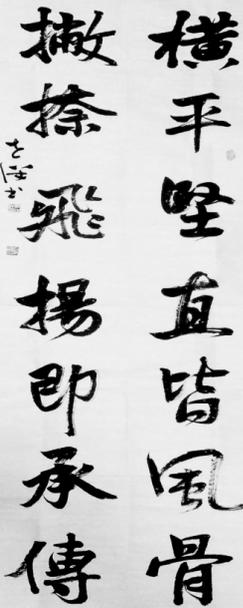 橫平堅直皆風骨
撇捺飛揚即承傳